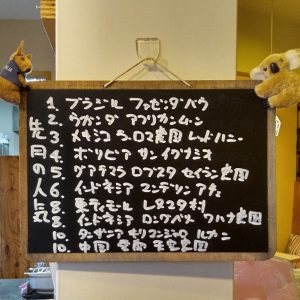 先月の人気
1. ブラジル ファゼンダバウ
2. ウガンダ アフリカンムーン
3. メキシコ ラ・ロマ農園 レッドハニー
4. ボリビア サンイグナシオ
5. グアテマラ ロブスタ セイラン農園
6. インドネシア マンデリン アチェ
8. 東ティモール レタスタ村
8. インドネシア ロングベリー ワハナ農園
10. タンザニア キリマンジャロ ルカニ
10. 中国 雲南 天空農園